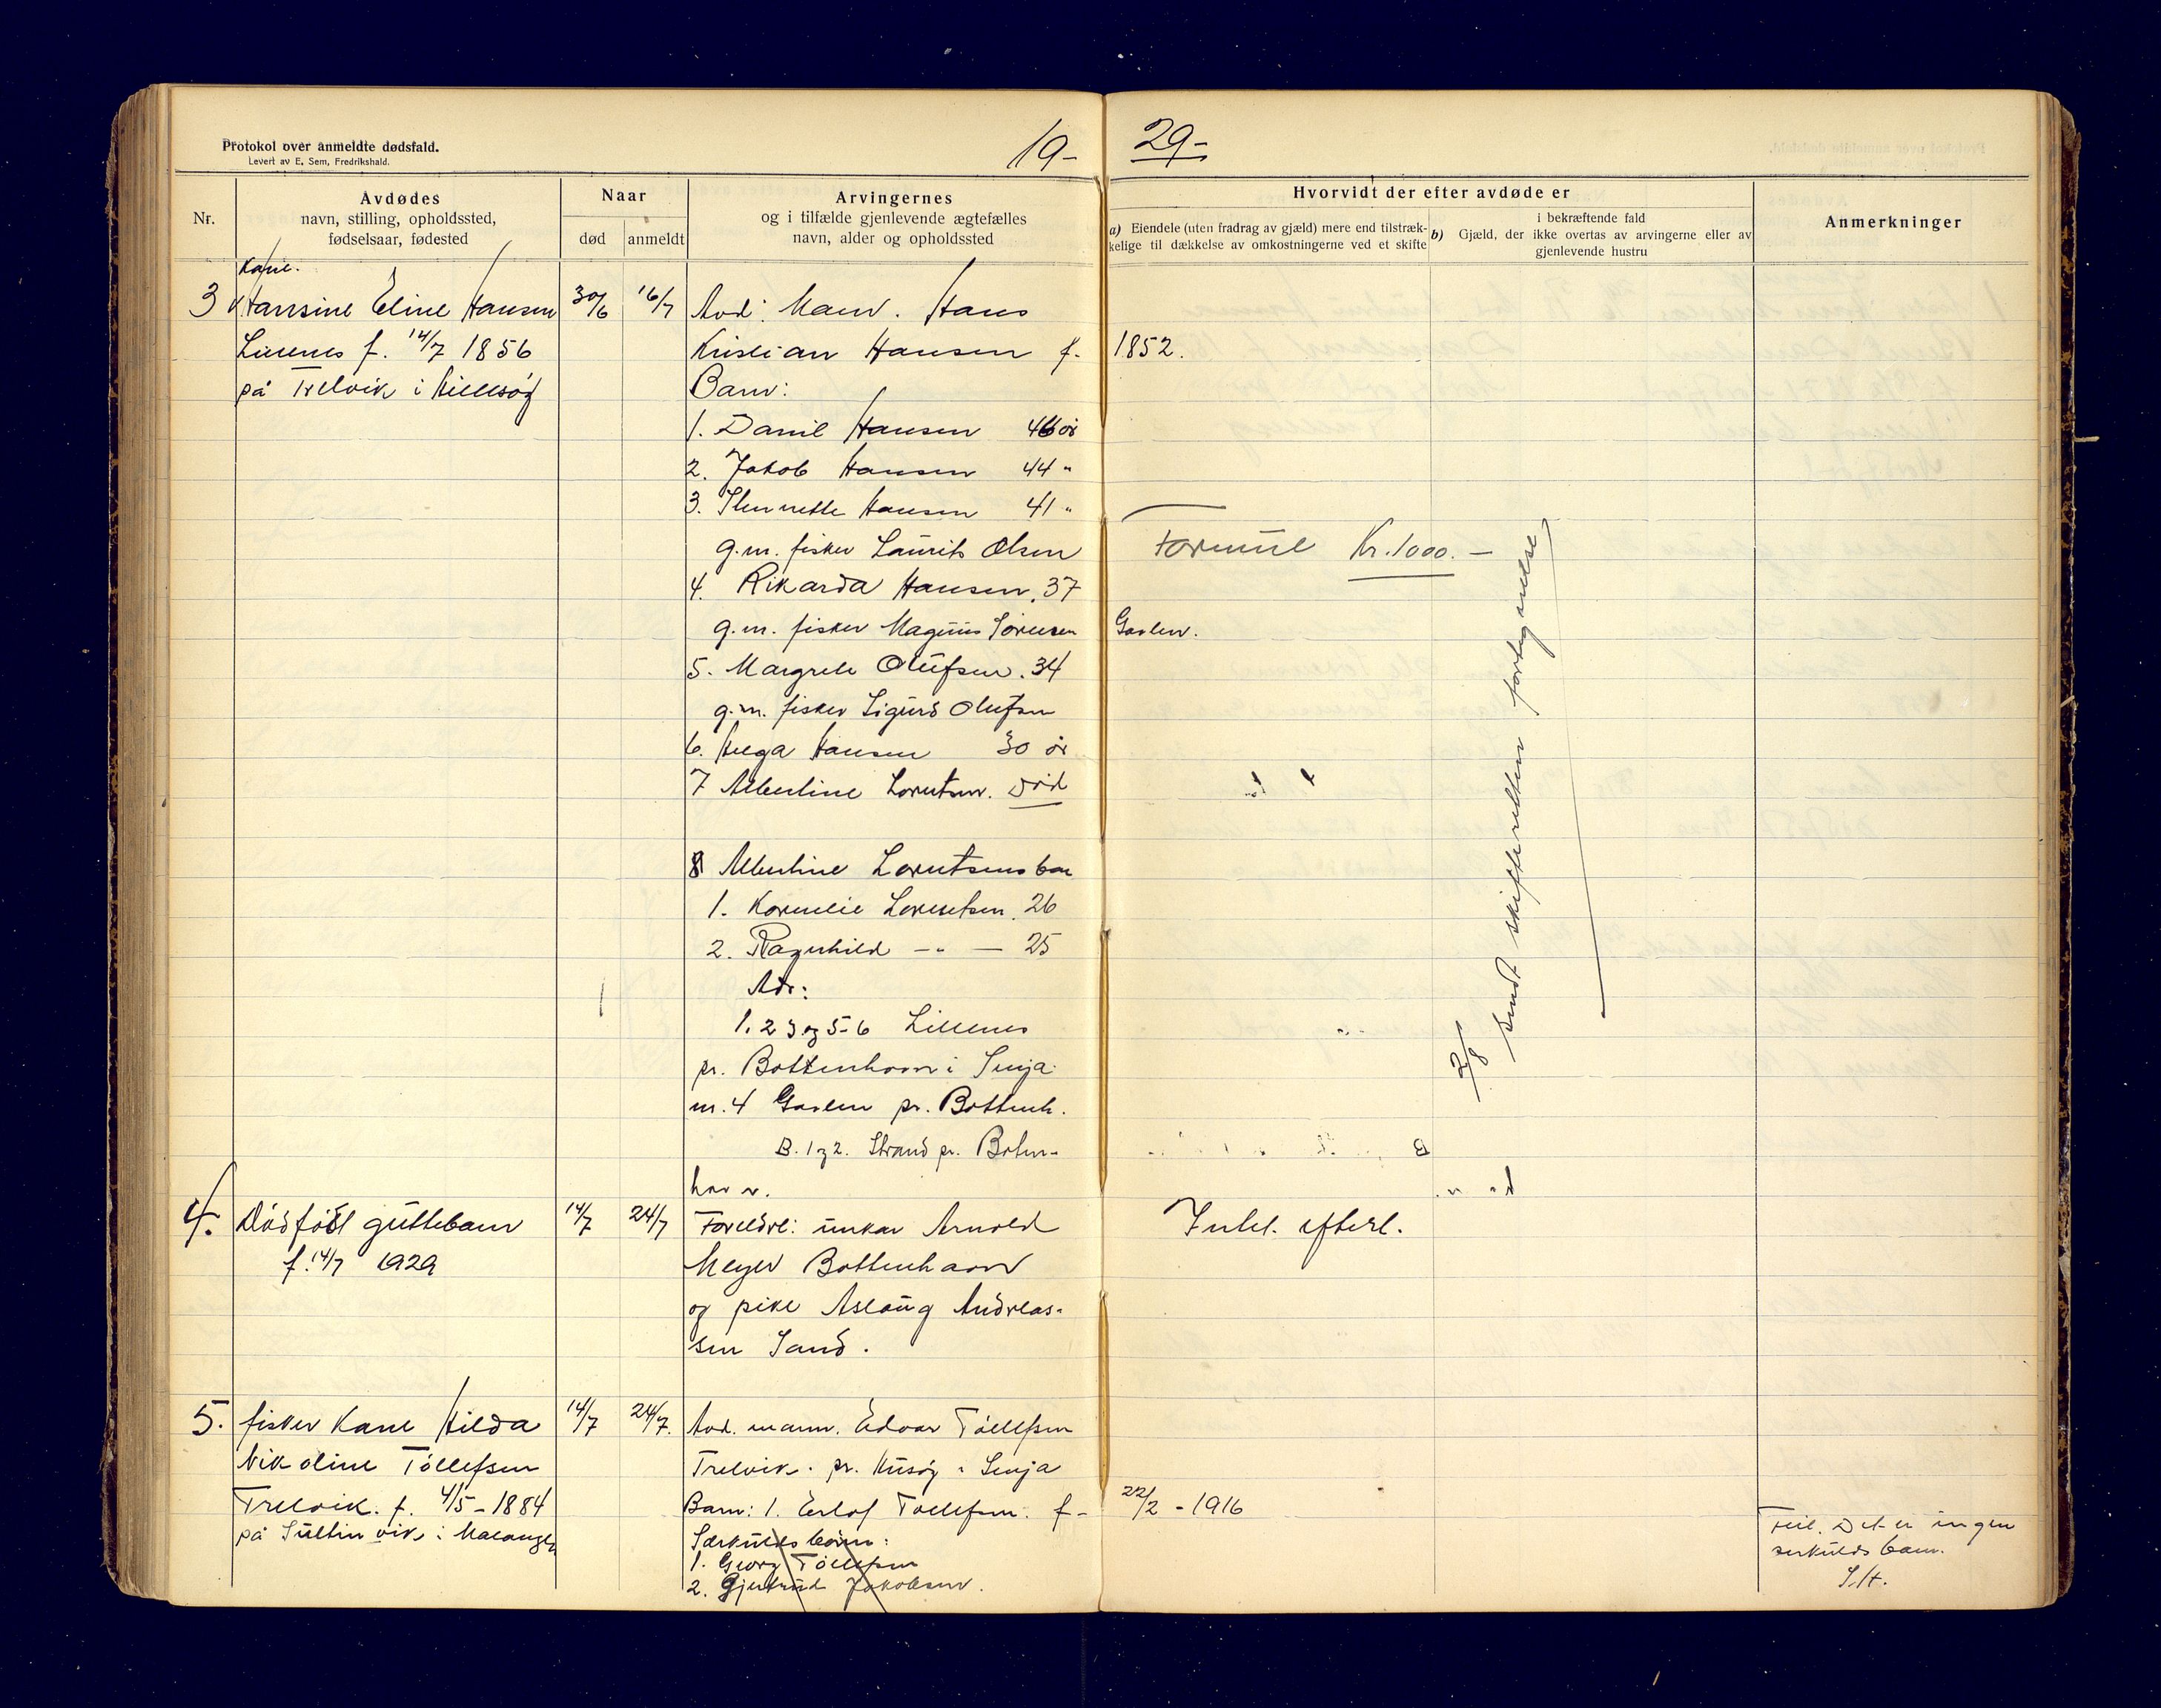 Protokol over anmeldte dødsfald.
Levert av E. Sem, Fredrikshald.
19- 29-
Nr.
Avdødes
navn, stilling, opholdssted,
fødselsaar, fødested
Naar
død
anmeldt
Arvingernes
og i tilfælde gjenlevende ægtefælles
navn, alder og opholdssted
Hvorvidt der efter avdøde er
a) Eiendele (uten fradrag av gjæld) mere end tilstræk-
kelige til dækkelse av omkostningerne ved et skifte
i bekræftende fald
b) Gjæld, der ikke overtas av arvingerne eller av
gjenlevende hustru
Anmerkninger
Kone.
3 Hansine Eline Hansen 30/6 16/7
Lillenes f. 14/7 1856
på Trelvik i Hillesøy
Avd: Mann. Hans
Kristian Hansen f. 1852.
Barn:
1. Danil Hansen 46 år
2. Jakob Hansen 44 "
3. Hansen 41 "
g.m. fisker Laurits Olsen
4. Rikarda Hansen. 37
g.m. fisker Magnus Sørensen
5. Margrete Olufsen. 34
g.m. fisker Sigurd Olufsen
6. Helga Hansen 30 år
7 Albertine Lorentsen. død
8 Albertine Lorentsens barn
1. Kornelie Lorentsen. 26
2. Ragnhild -"- 25
Adr:
1. 2 3 og 5-6 Lillenes
pr. Bottenhavn i Senja
nr. 4 pr. Bottenh.
B. 1 og 2. Strand pr. Boten-
havn.
Formue Kr. 1000.-
2/8 sendt skifteretten fortegnelse
4. Dødfødt guttebarn 14/7 24/7
f. 14/7 1929
Foreldre: unkar Arnold
Meyer Bottenhavn
og pike Aslaug Andreas-
sen Sand.
Intet efterl.
5. fisker Kone Hilda 14/7 24/7.
Nikoline Tøllefsen
Trelvik. f. 4/5-1884
på i Malangen
Avd. mann. Edvar Tøllefsen
Trelvik. pr. Senja
Barn: 1. Tøllefsen. f- 22/2-1916
Særkulds børn:
1. Georg Tøllefsen
2. Gjertrud Jakobsen.
Feil. Det er ingen
serkulds barn.
S.H.